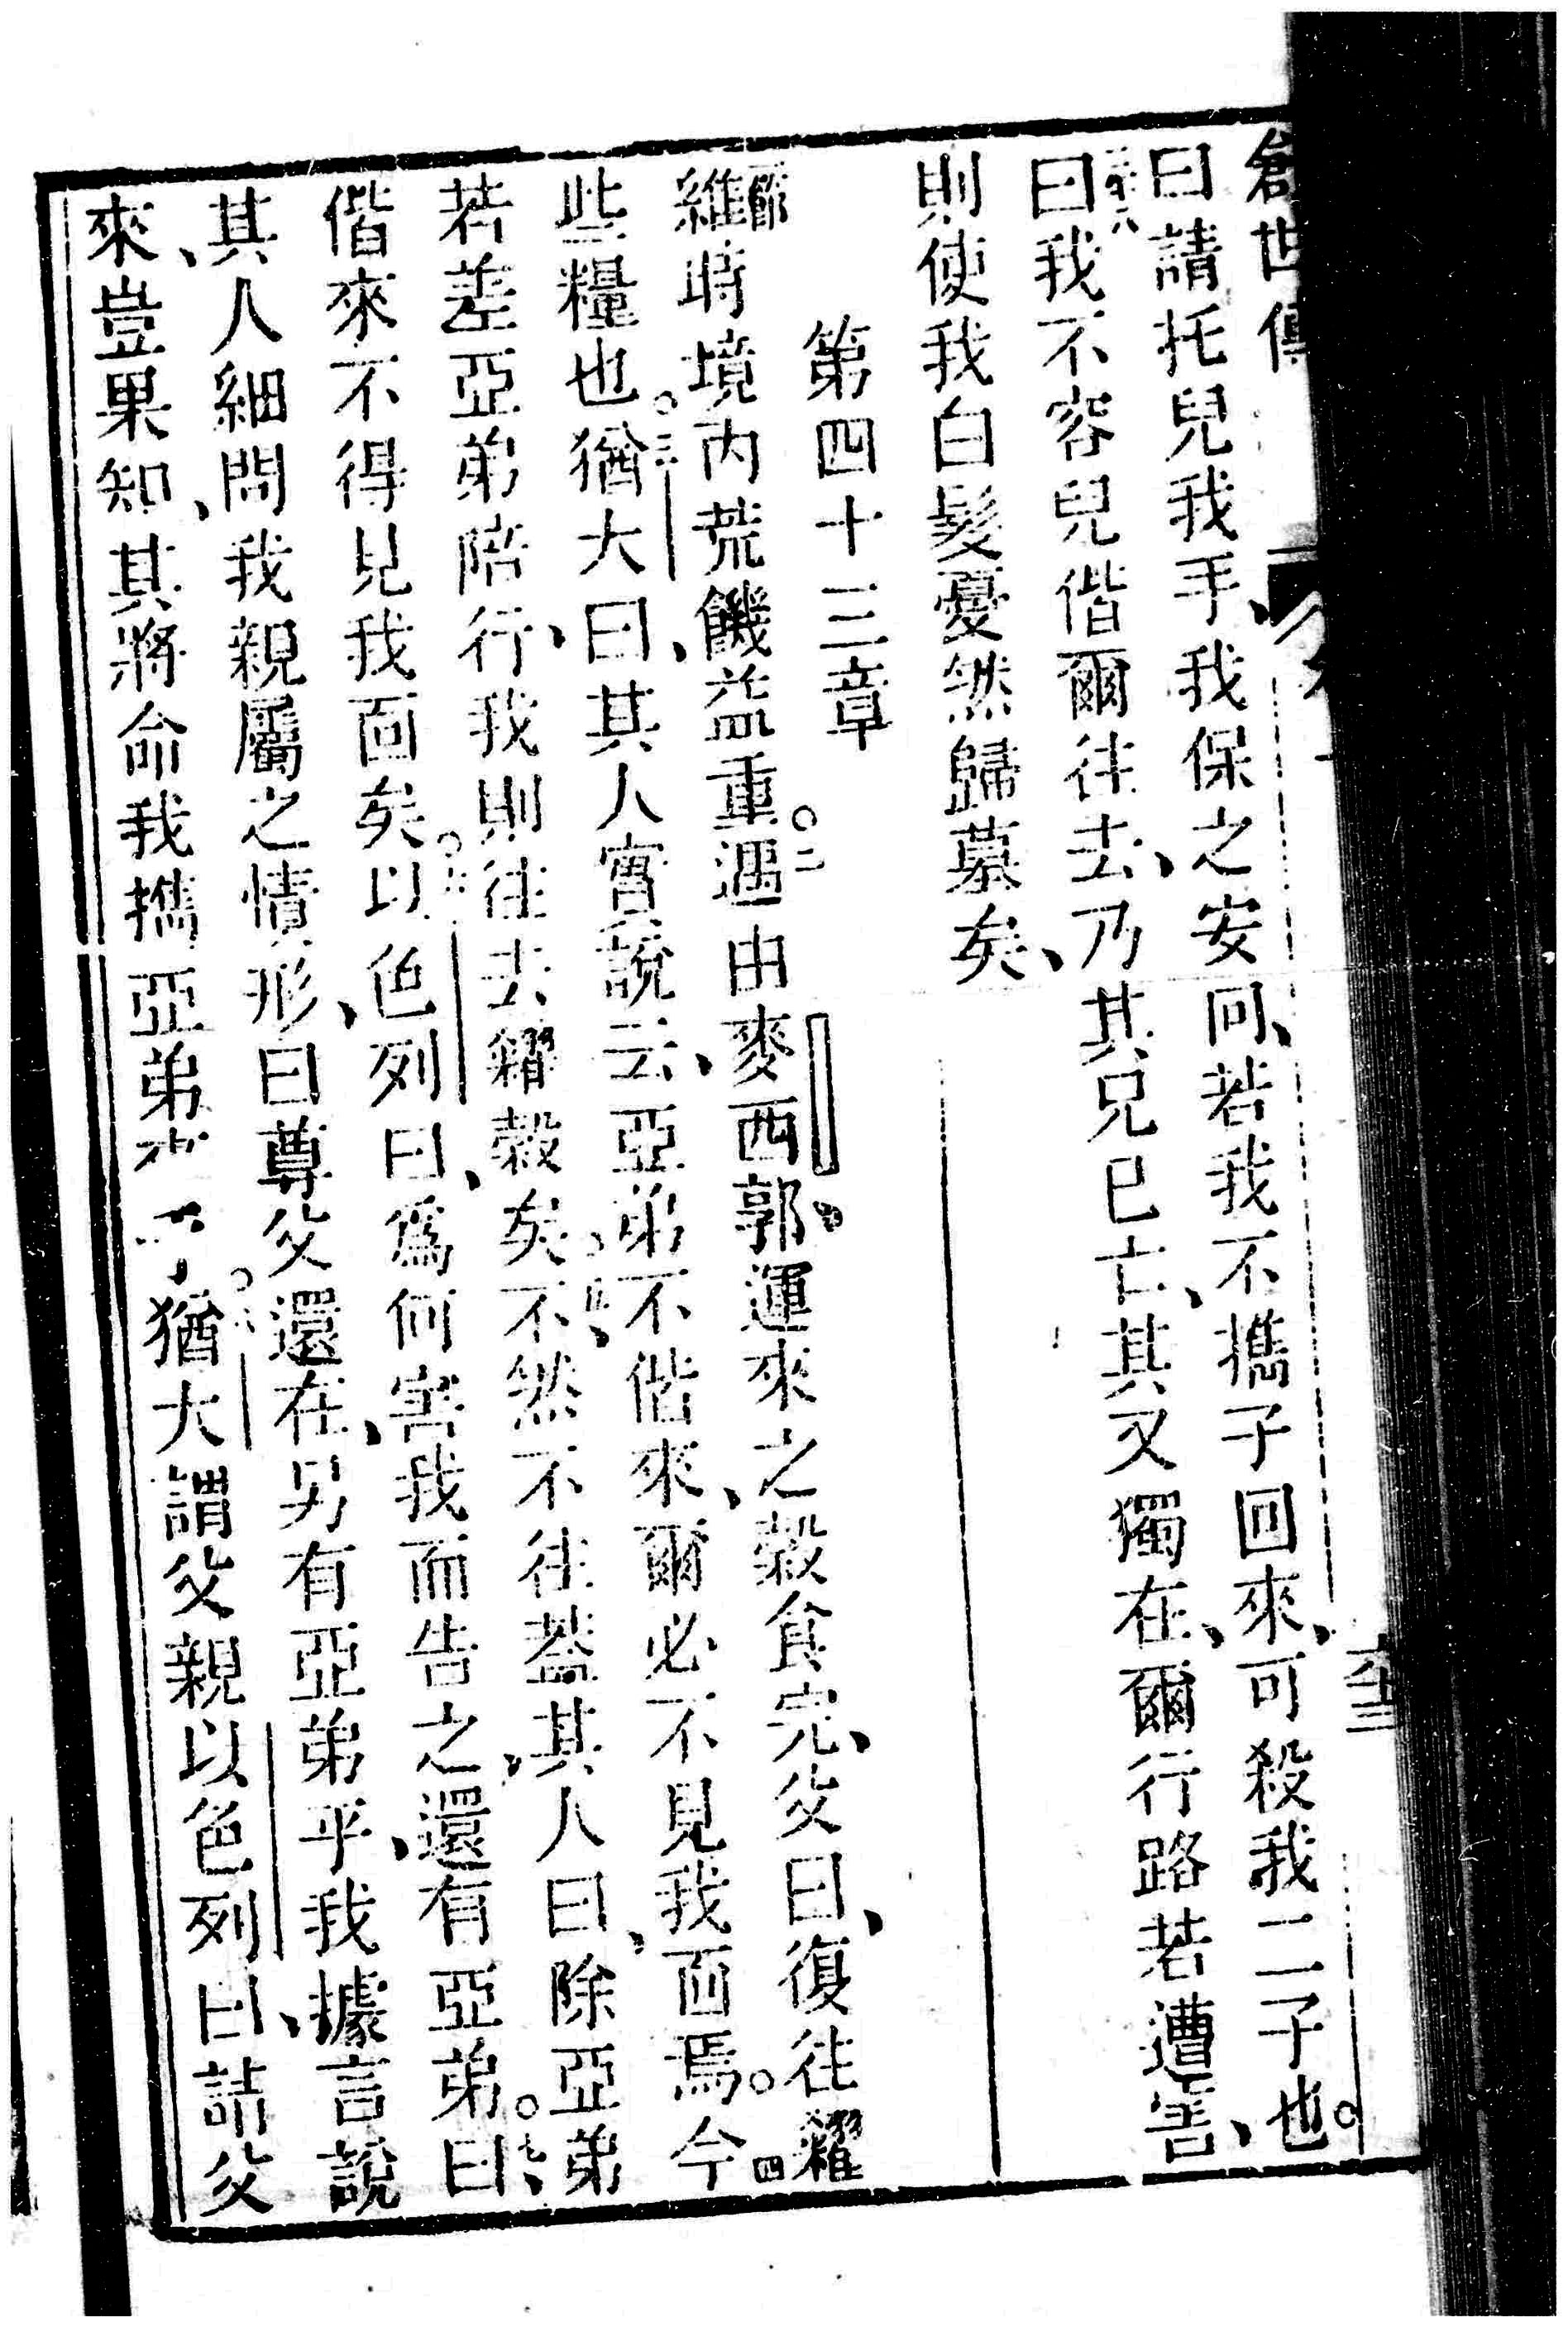 創世傳
曰請托兒我手、我保之安回、若我不携子回來、可殺我二子也。
三十八曰我不容兒偕爾往去、乃其兄已亡、其又獨在、爾行路若遭害、
則使我白髮憂然歸墓矣、
第四十三章
維時境內荒饑益重。二遇由麥西郭運來之穀食完、父曰、復往糴
些糧也。三猶大曰、其人實說云、亞弟不偕來、爾必不見我面焉。四今
若差亞弟陪行、我則往去糴穀矣。五不然不往、蓋其人曰、除亞弟
偕來不得見我面矣。六以色列曰、爲何害我而告之、還有亞弟。七曰、
其人細問我親屬之情形、曰尊父還在、另有亞弟乎、我據言說
來、豈果知、其將命我携亞弟 。猶大謂父親以色列曰、請父